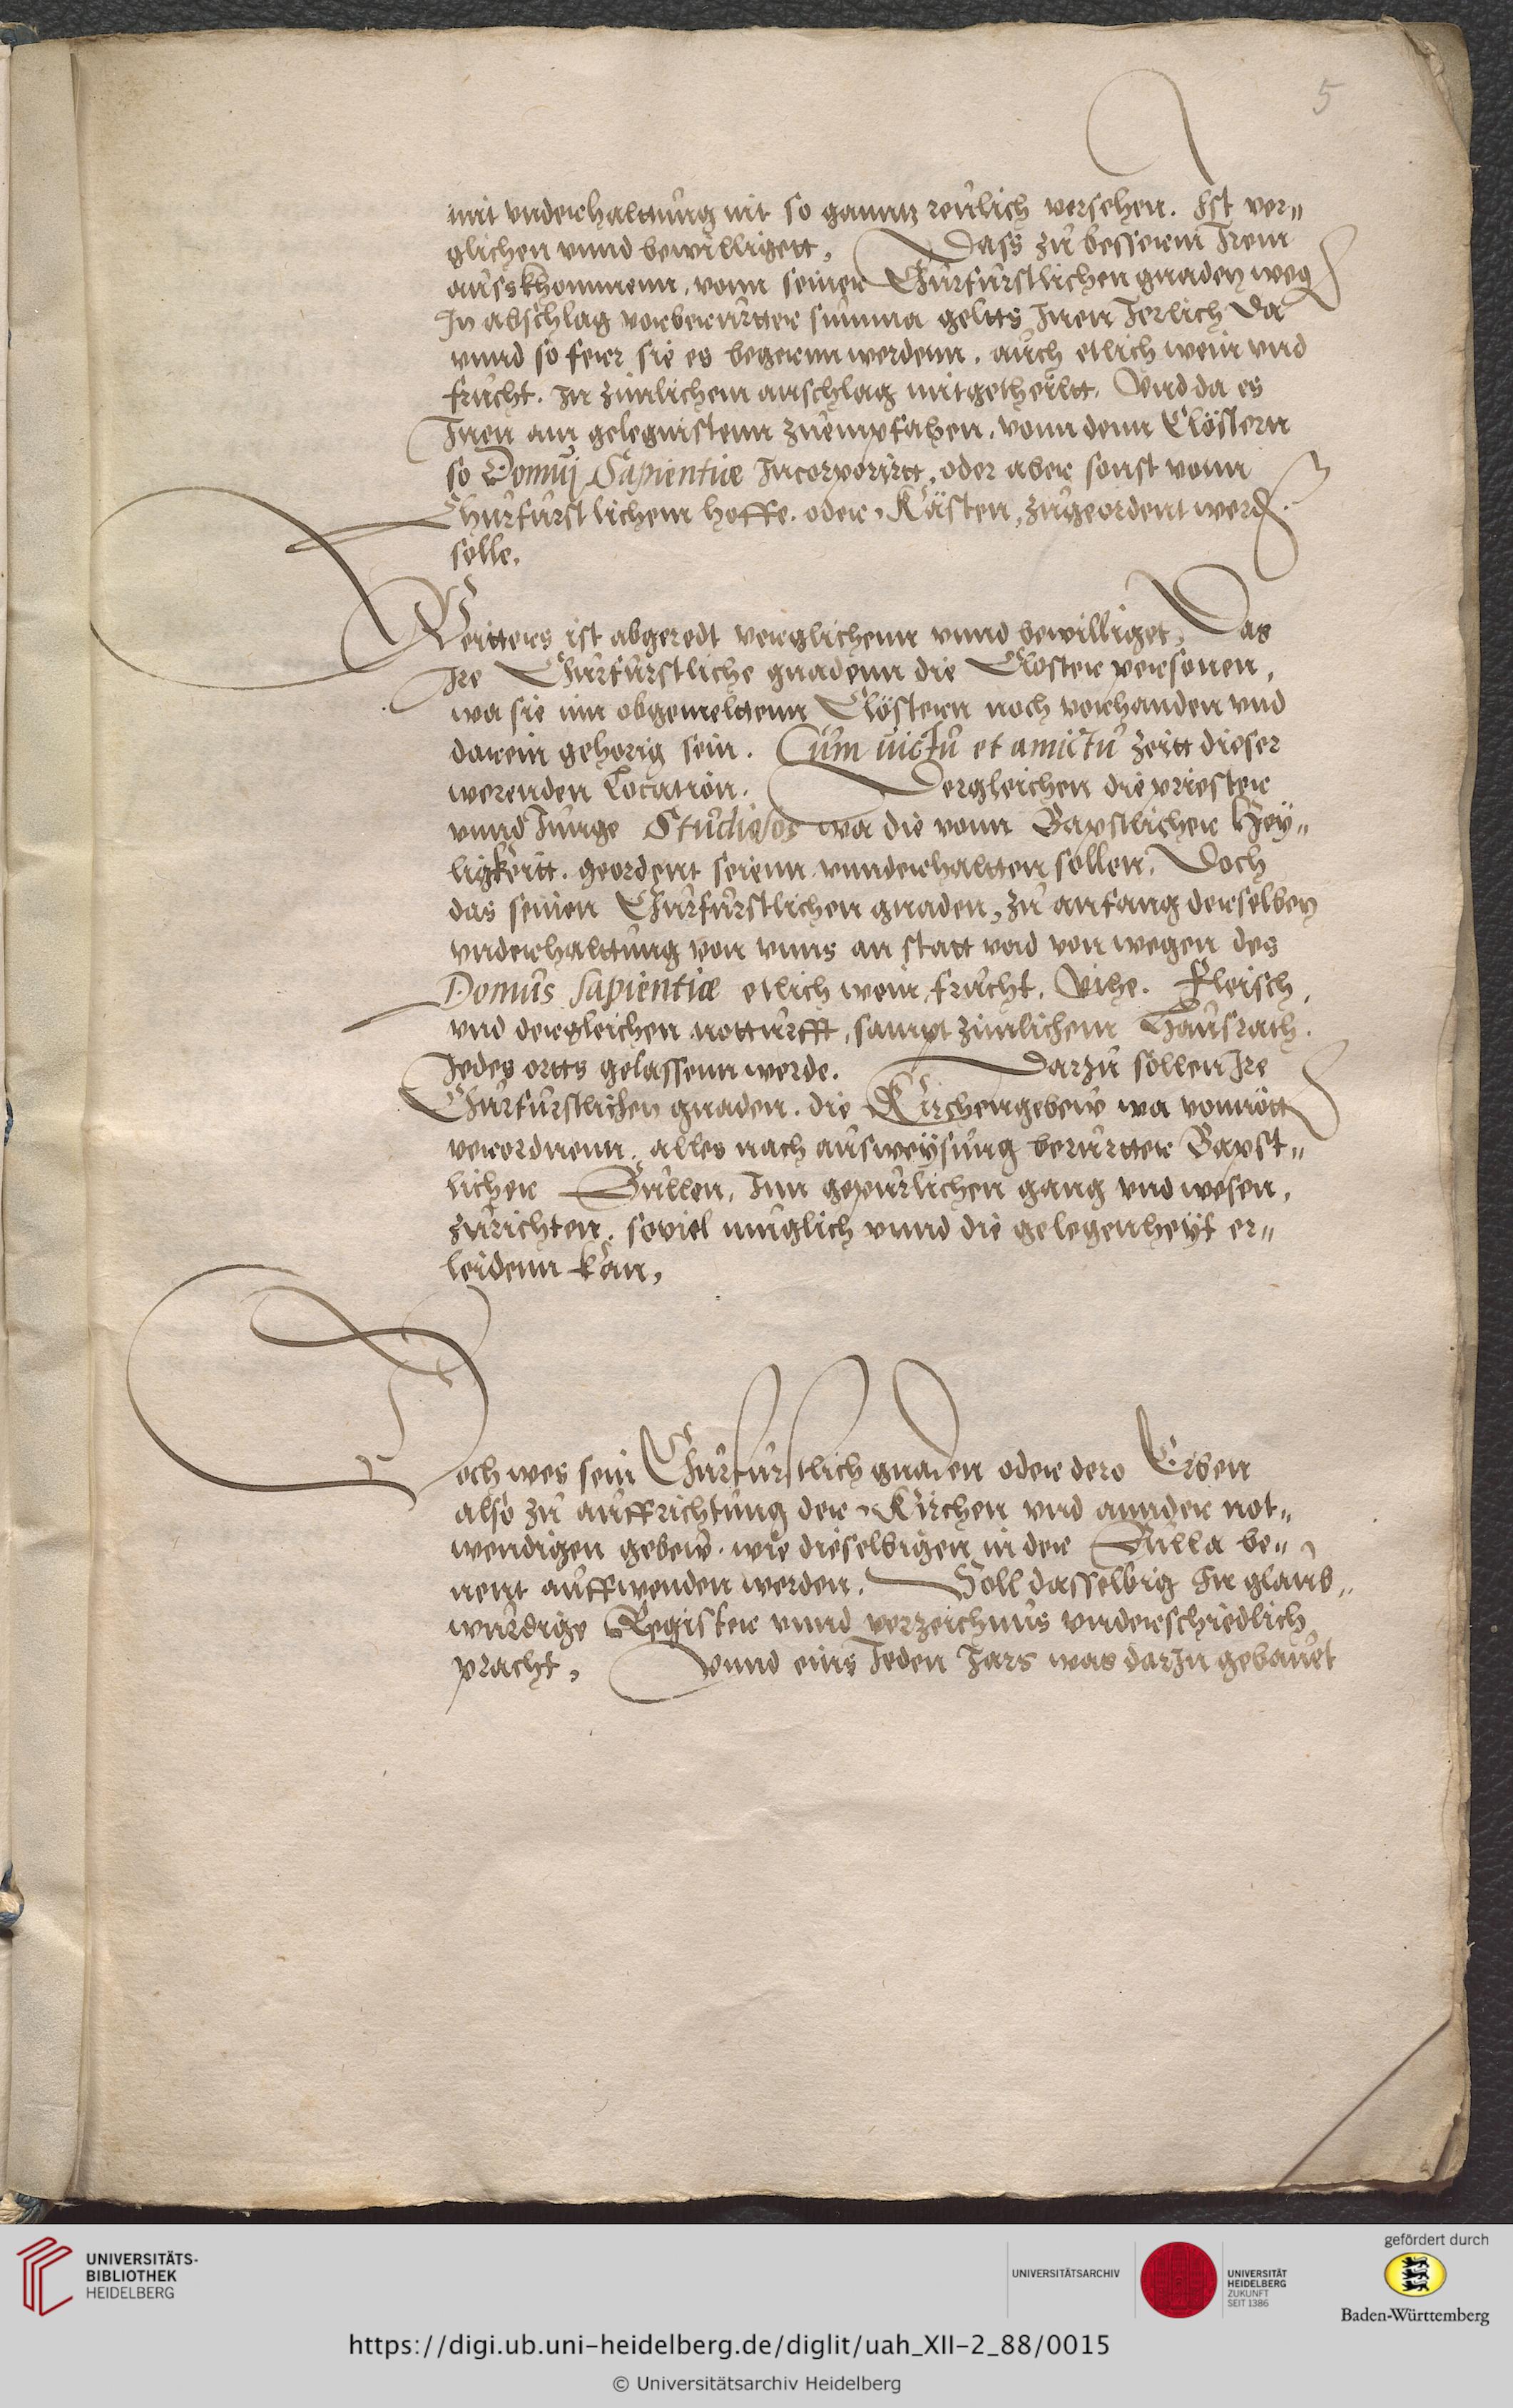 5
mit vnderhalttung nit so ganntz reulich versehen. Ist ver„
glichen vnnd bewilligett, Dass zu besserm Irem
ausskhommenn, vonn seiner Churfurstlichen gnaden weg
In abschlag vorberurtter summa geltts Inen Jerlich Da
vnnd so ferr sie es begerenn werdenn, auch etlich wein vnd
frucht. In zimlichem anschlag mitgetheiltt, Vnd da es
Inen am gelegnistenn zuempfahen, vonn denn Clöstern
so Domuj Sapientiæ Incorporirtt, oder aber sonst vonn
Churfurstlichem hoffe. oder Kästen, zugeordent werd
solle.
Veritters ist abgeredt verglichenn vnnd bewilliget, Das
Ire Churfurstliche gnadenn die Closter personen,
wa sie inn obgemelttenn Clöstern noch vorhanden vnd
darein gehorig sein. Cum uictu et amictu zeitt dieser
werenden Location. Dergleichen die priester
vnnd Junge Studiosos wa die vonn Bapstlicher Hey„
ligkeitt. geordent seienn vnnderhaltten sollen, Doch
das seinen Churfurstlichen gnaden, zu anfang derselben
vnderhalttung von vnns an statt vnd von wegen des
Domus Sapientiæ etlich wein frucht, Vihe. Fleisch,
vnd dergleichen notturfft, sampt zimlichem Hausrath.
Jedes ortts gelassenn werde. Darzu sollen Ire
Churfurstlichen gnaden. die Kirchengebew wa vonnött
verordnenn, alles nach ausweysung berurtter Bapst„
licher Bullen, Inn gepurlichen gang vnd wesen,
zurichten, soviel muglich vnnd die gelegenheyt er„
leidenn kan,
Doch wes sein Churfurstlich gnaden oder dero Erben
also zu auffrichtung der Kirchen vnd annder not„
wendigen gebew, wie dieselbigen in der Bulla be„
nent auffwenden werden. Soll dasselbig In glaub„
wurdige Register vnnd verzeichnus vnderschiedlich
pracht, Vnnd eins Jeden Jars was darIn gebauet
UNIVERSITÄTS-
BIBLIOTHEK
HEIDELBERG
UNIVERSITÄTSARCHIV
UNIVERSITÄT
HEIDELBERG
ZUKUNFT
SEIT 1386
gefördert durch
Baden-Württemberg
https://digi.ub.uni-heidelberg.de/diglit/uah_XII-2_88/0015
© Universitätsarchiv Heidelberg